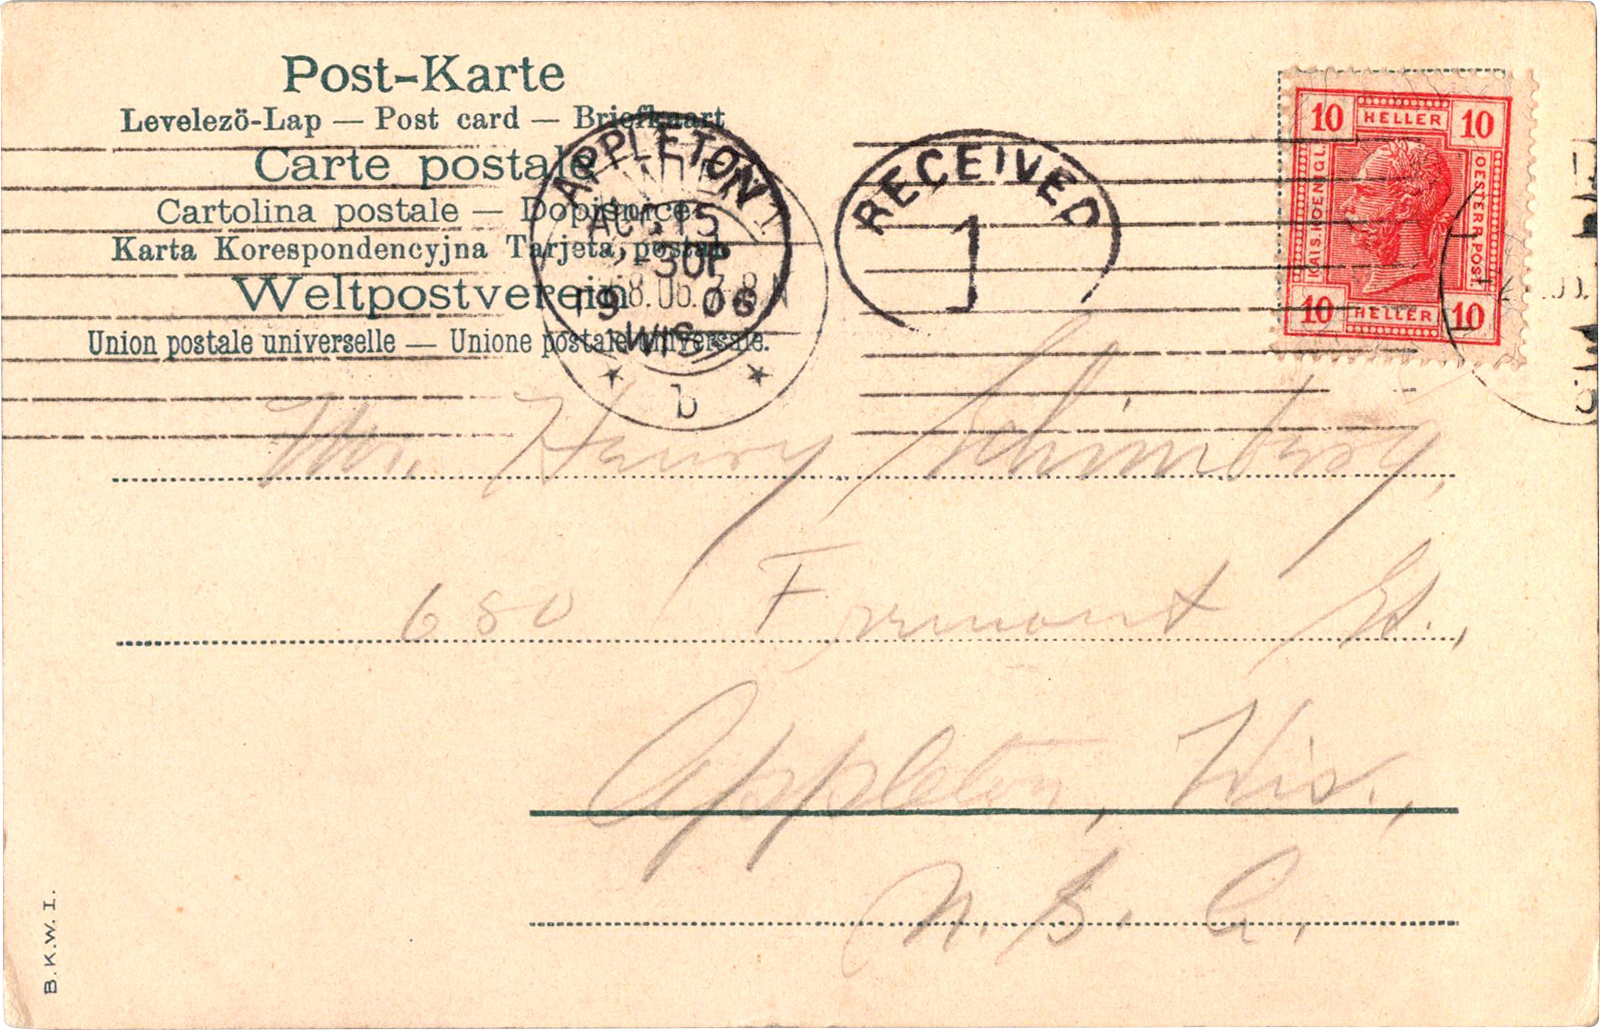 Post-Karte
Levelező-Lap — Post card — Briefkaart
Carte postale
Cartolina postale — Dopisnice
Karta Korespondencyjna Tarjeta postal
Weltpostverein
Union postale universelle — Unione postale universale.
APPLETON
AUG 15
-30P
19 06
WIS.
8.06.
b
RECEIVED
1
10 HELLER 10
KAIS. KOENIGL.
OESTERR. POST.
10 HELLER 10
Mr. Henry Schimberg,
680 Fremont St.,
Appleton, Wis.,
N. S. A.
B.K.W.I.